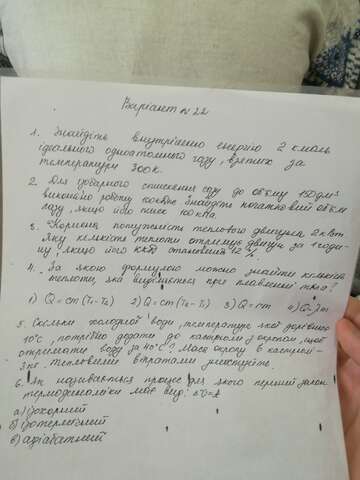 Варіант № 22
1. Знайдіть внутрішню енергію 2 кмоль
ідеального одноатомного газу, взятого за
температури 300К.
2. Для ізобарного стиснення газу до об'єму 150 дм³
виконано роботу Знайдіть початковий об'єм
газу, якщо його тиск 100 кПа.
3. Корисна потужність теплового двигуна 2 кВт
Яку кількість теплоти отримує двигун за 1 годи-
ну, якщо його ККД становить 12%.
4. За якою формулою можна знайти кількість
теплоти, яка виділяється при плавленні тіла?
1) Q = cm(T₁-T₂) 2) Q = cm(T₂-T₁) 3) Q = rm 4) Q = λm
5. Скільки холодної води, температура якої дорівнює
10°С, потрібно додати до каструлі з окропом, щоб
отримати воду за 40°С? Маса окропу в каструлі-
3кг. Тепловими втратами знехтуйте.
6. Як називається процес для якого перший закон
термодинаміки має вид:
а) ізохорний
б) ізотермічний
в) адіабатний